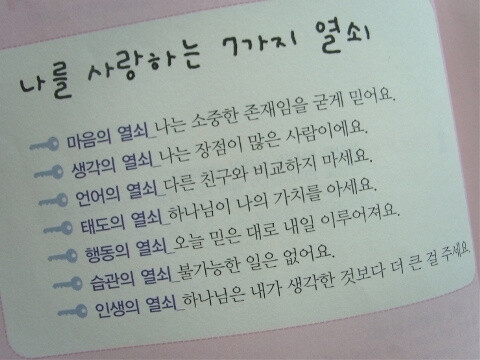 나를 사랑하는 7가지 열쇠
마음의 열쇠_나는 소중한 존재임을 굳게 믿어요.
생각의 열쇠_나는 장점이 많은 사람이에요.
언어의 열쇠_다른 친구와 비교하지 마세요.
태도의 열쇠_하나님이 나의 가치를 아세요.
행동의 열쇠_오늘 믿은 대로 내일 이루어져요.
습관의 열쇠_불가능한 일은 없어요.
인생의 열쇠_하나님은 내가 생각한 것보다 더 큰 걸 주세요.